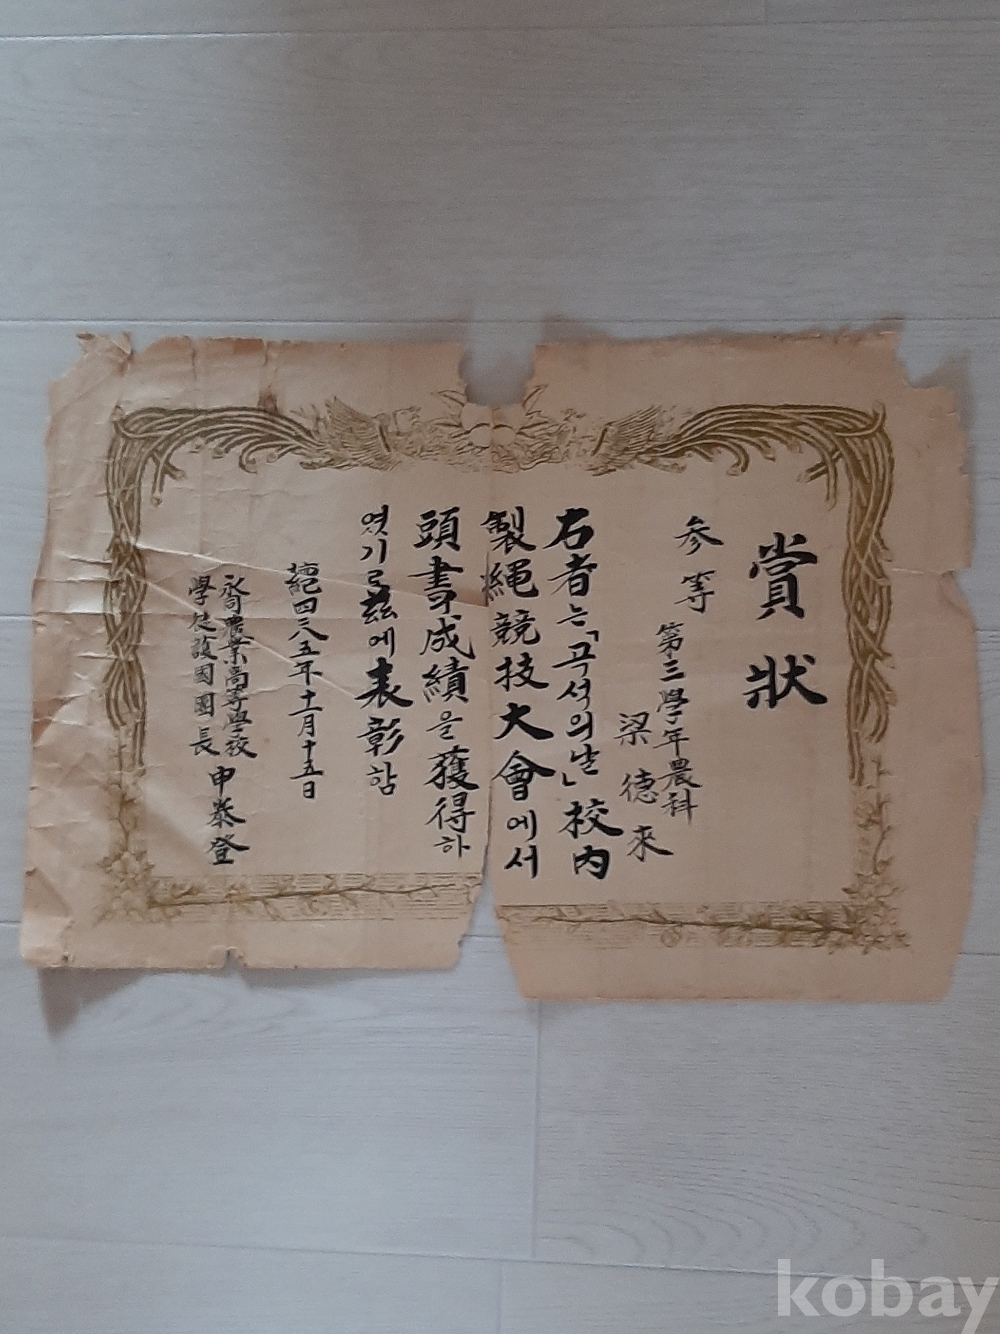 賞狀
參等
第三學年農科
梁德來
右者는「곡석의날」校內
製繩競技大會에서
頭書成績을獲得하
엿기로玆에表彰함
檀紀四二八五年十一月十五日
農業高等學校
學徒護國團長 申泰登
kobay